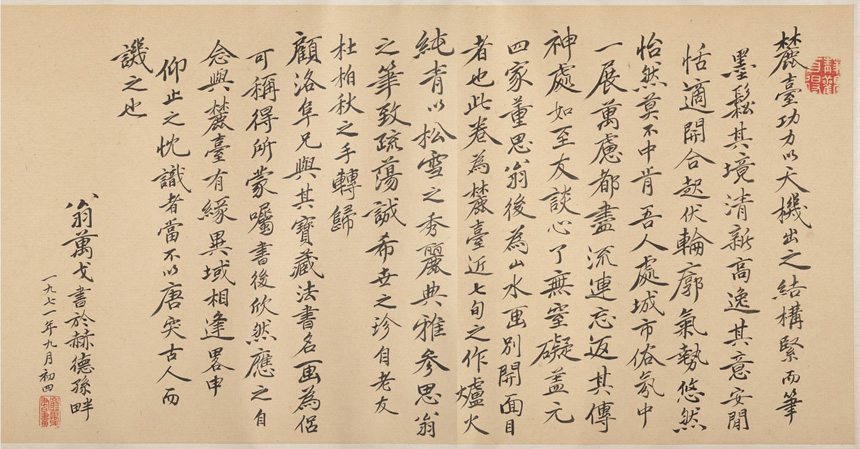 麓臺功力以天機出之結構緊而筆
墨鬆其境清新高逸其意安閒
恬適開合起伏輪廓氣勢悠然
怡然莫不中肯吾人處城市俗氛中
一展萬慮都盡流連忘返其傳
神處如至友談心了無窒礙蓋元
四家董思翁後為山水畫別開面目
者也此卷為麓臺近七旬之作爐火
純青以松雪之秀麗典雅參思翁
之筆致疏蕩誠希世之珍自老友
杜柏秋之手轉歸
顧洛阜兄與其寶藏法書名畫為侶
可稱得所蒙囑書後欣然應之自
念與麓臺有緣異域相逢畧申
仰止之忱識者當不以唐突古人而
譏之也
翁萬戈書於赫德孫畔
一九七一年九月初四